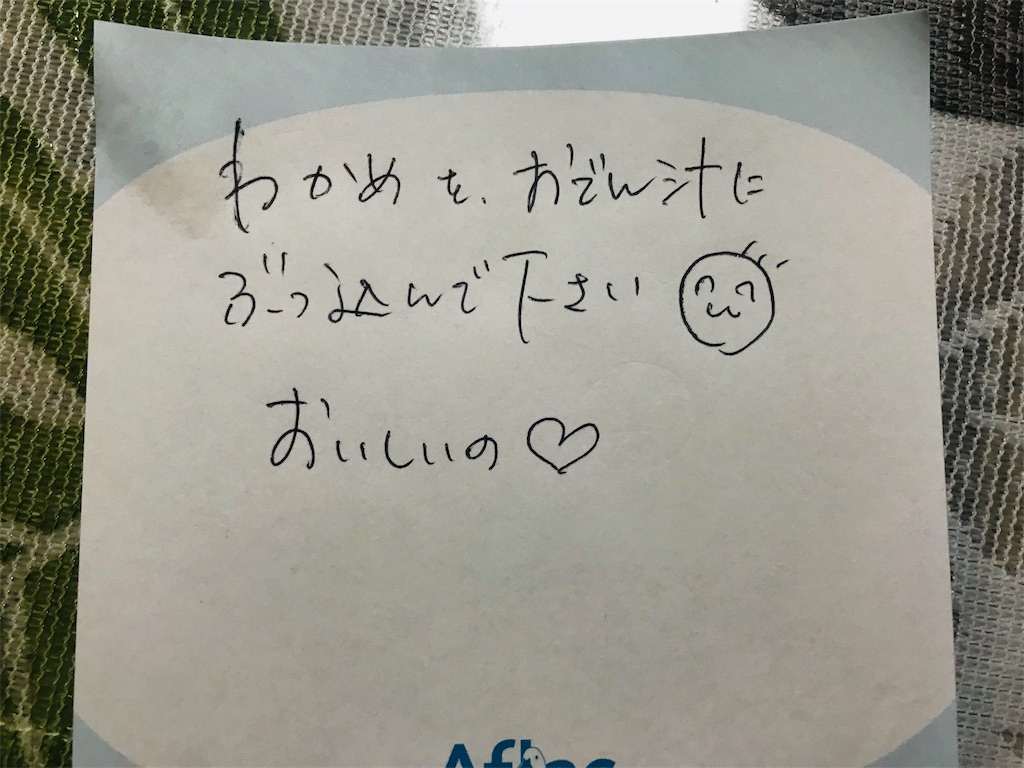 わかめを、おでん汁に
ぶっ込んで下さい
おいしいの♡
Aflac